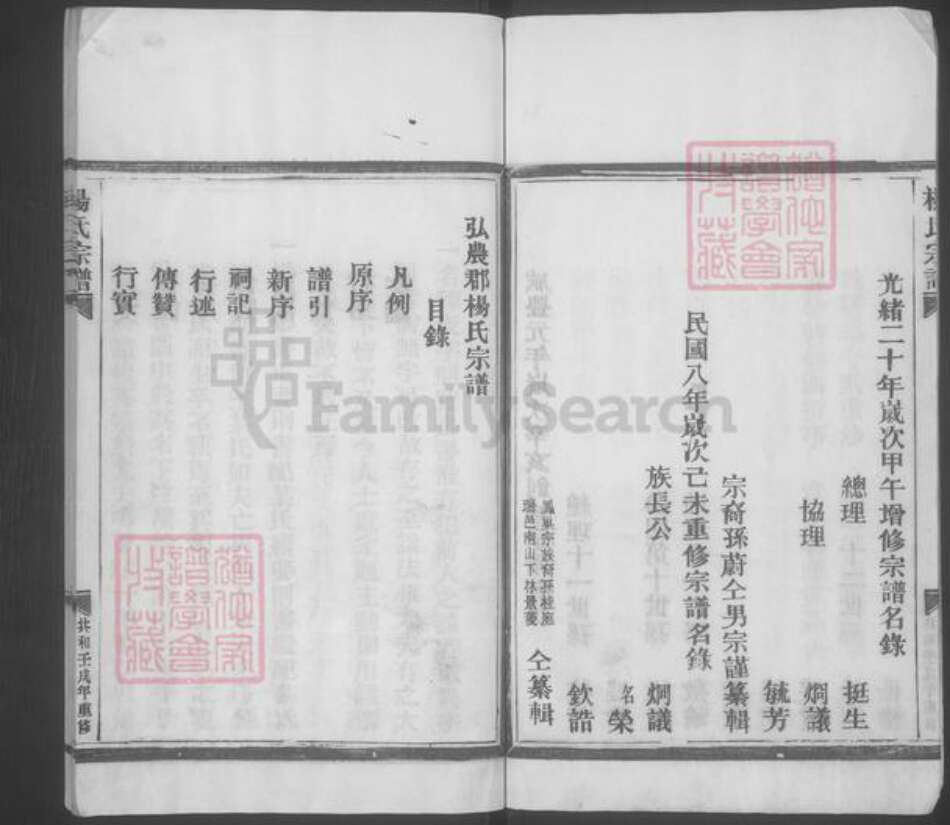 楊氏宗譜
光緒二十年歲次甲午增修宗譜名錄
總理 挺生
協理 烱議
毓芳
宗裔孫蔚仝男宗謹纂輯
民國八年歲次己未重修宗譜名錄
族長公 烱議
名榮
欽誥
仝纂輯
弘農郡楊氏宗譜
目錄
凡例
原序
譜引
新序
祠記
行述
傳贊
行實
楊氏宗譜
共和壬戌年重修
FamilySearch